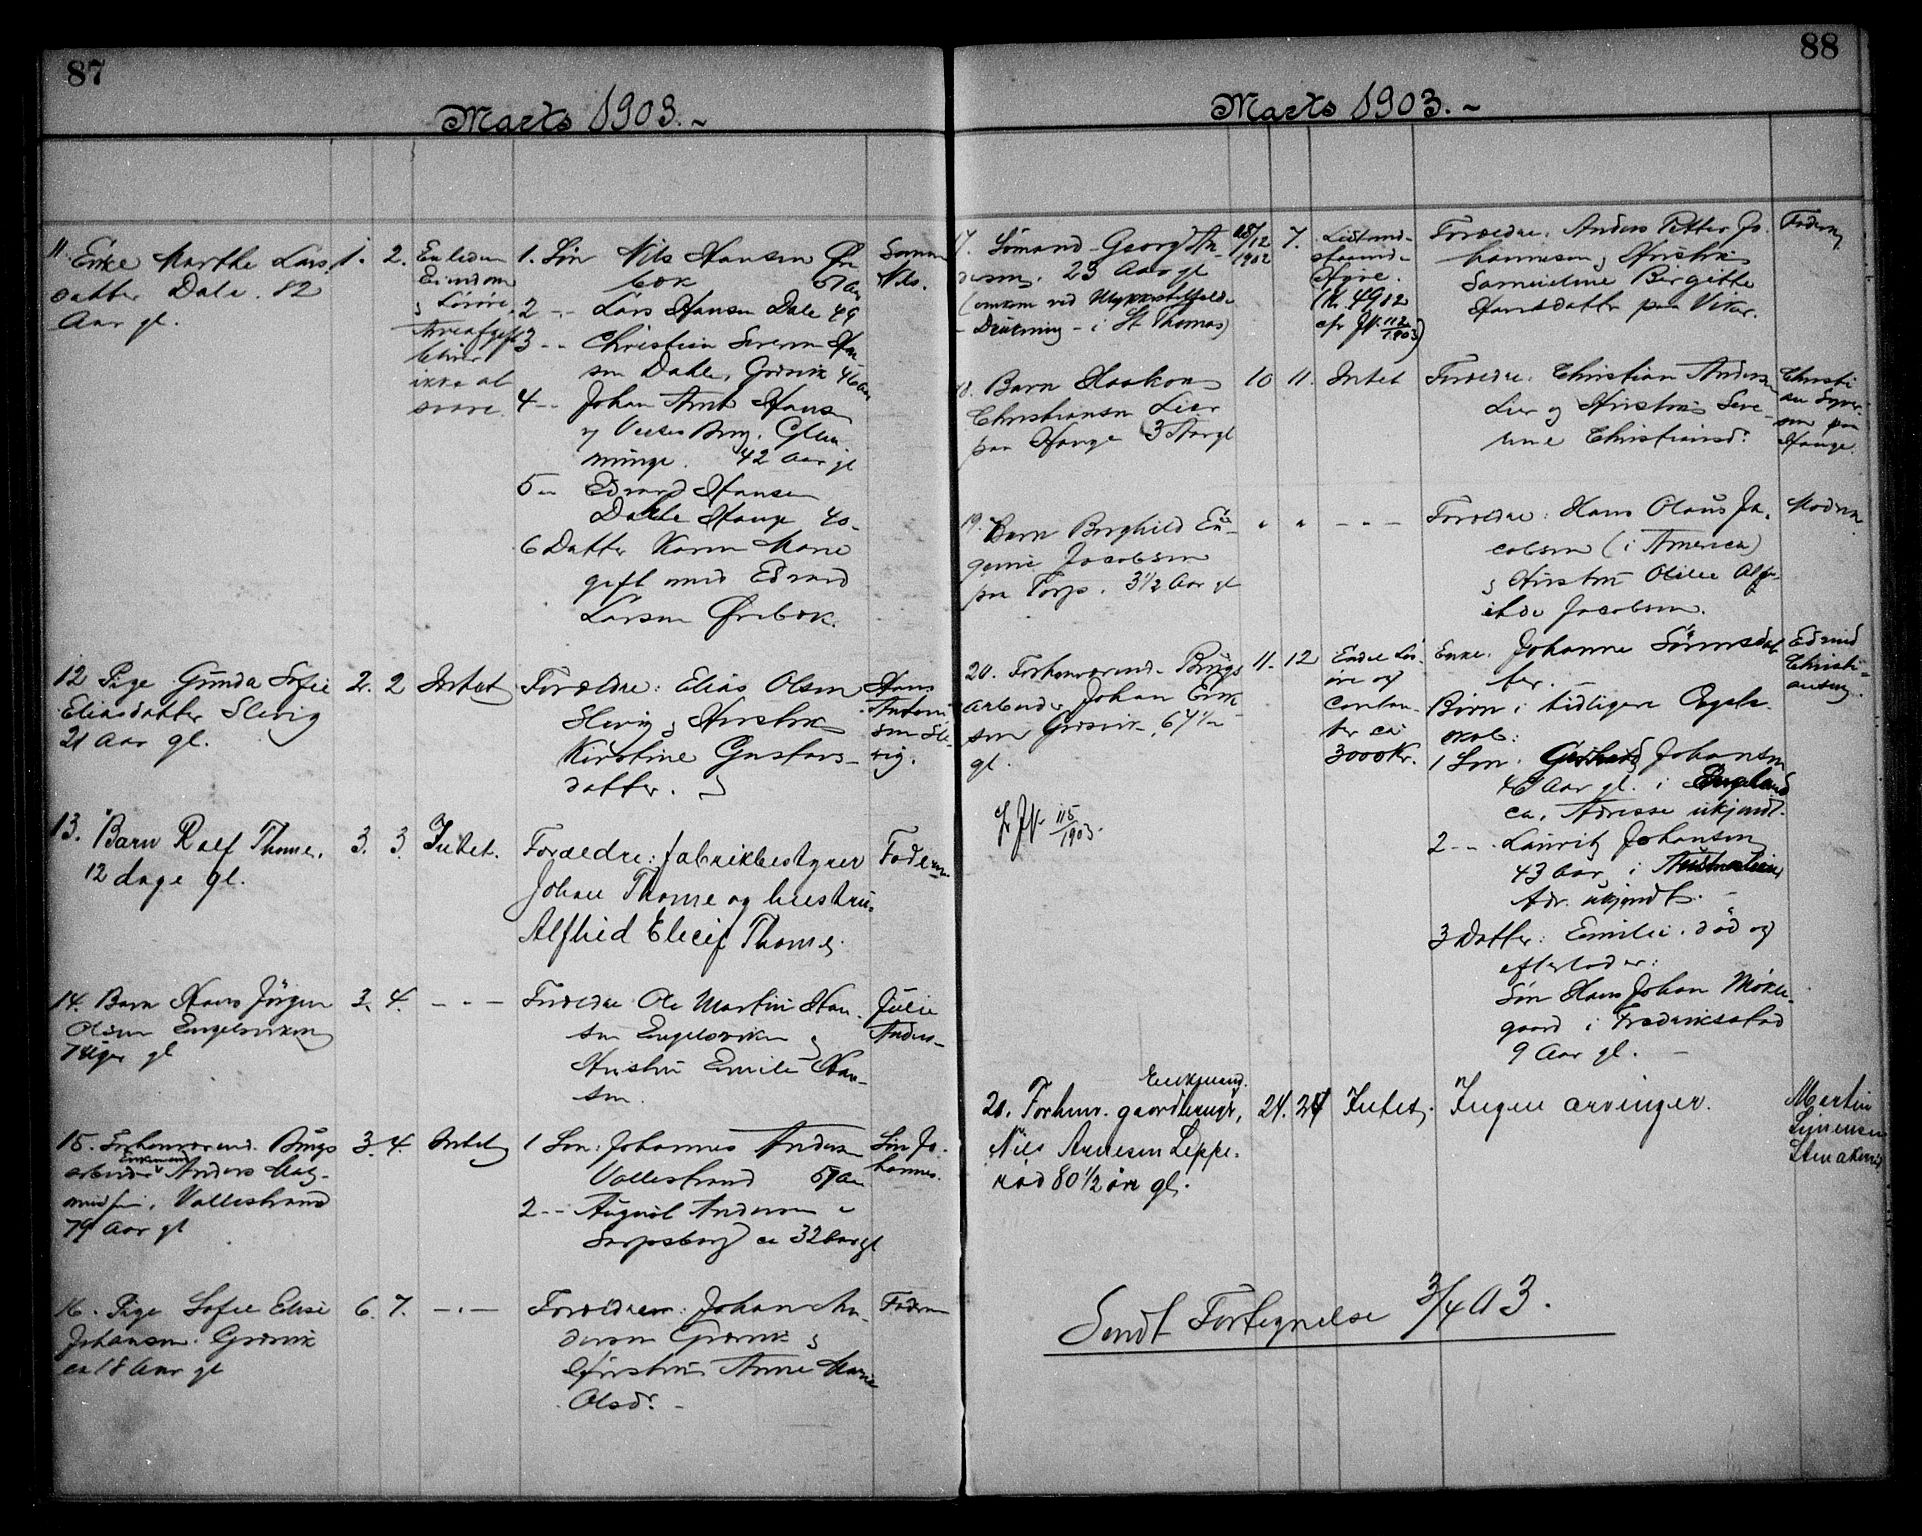 87
Marts 1903.
11. Enke Marthe Lars
datter Dale. 82
Aar gl.
1. 2.
Enledem
Eiendom
og Lösöre,
Arveafgift
bliver
ikke at
svare.
1. Sön Nils Hansen Öre
bök 51 Aar
2 - - Lars Hansen Dale 49
3 - - Christian Severin Han
sen Dahle, Græsvik 46 Aar
4 - - Johan Arnt Hansen
42 Aar gl
5 - Edvard Hansen
Dahle Hauge 40 -
6 Datter Karen Marie
gift med Edvard
Larsen Örebök.
Sönnen
Nils.
12 Pige Gunda Sofie
Eliasdatter Slevig
21 Aar gl.
2. 2 Intet
Forældre: Elias Olsen
Slevig og Hustru
Kirstine Gustavs-
datter.
Hans
Anton
sen Sle
vig.
13. Barn Rolf Thome.
12 dage gl.
3. 3. Intet.
Forældre: fabrikbestyrer
Johan Thome og hustru.
Alfhild Thome.
Faderen
14. Barn Hans Jörgen
Olsen Engelsviken
7 Uger gl
3. 4. - - -
Forældre Ole Martin Han
sen Engelsviken og
Hustru Emilie Han-
sen.
Julie
Anders-
15. Forhenværend. Brugs
arbeider Enkemand Anders Mag-
Vallestrand
79 Aar gl
3. 4. Intet
1 Sön: Johannes Andersen
Vallestrand 51 Aar
2 - - August Andersen i
Sarpsborg ca 32 Aar gl
Sön Jo-
hannes.
16. Pige Sofie Elise
Johansen. Græsvik
ca 18 Aar gl
6. 7. - . -
Forældre: Johan An-
dersen Græsvik og
Hustru Anne Marie
Olsd.
Faderen
88
Marts 1903.
17. Sömand Georg An-
dersen. 23 Aar gl
(omkom ved Ulykkestilfælde
- Drukning - i St Thomas)
/12
1902
7.
Hyre.
Kr. 49 02
cfr JN. 112/1903)
Forældre: Anders Petter Jo-
hannesen og Hustru
Birgitte
Hansdatter paa Viker.
Faderen
18. Barn Haakon
Christiansen Lier
paa Hauge 3 Aar gl
10 11. Intet
Forældre: Christian Andersen
Lier og Hustru Seve-
rine Christiansd.
Christi
an Syver
sen paa
Hauge.
19. Barn Borghild Eu-
genie Jacobsen
paa Torp. 3 1/2 Aar gl
" " - - -
Forældre: Hans Olaus Ja-
cobsen (i America)
og Hustru Otilie Alf-
hilde Jacobsen.
Moderen
20. Forhenværend. Brugs
arbeider Johan Erik
sen Græsvik, 67 Aar
gl.
cfr JN. 115/1903.
11. 12
Endel Lös-
öre og
contan-
ter ca
3000 Kr.
Enke: Johanne Sörensdat
ter. -
Börn i tidligere Ægte-
skab:
1 Sön: Gerhard Johansen
Aar gl. i England
ca, Adresse ukjendt.
2 - - Lauritz Johansen
43 Aar, i Australien
Adr. ukjendt. -
3 Datter: Emilie. död og
efterlader:
Sön Hans Johan Mökle-
gaard i Fredriksstad
9 Aar gl. -
Edvind
Christi-
ansen.
21. Forhenv. gaardbruger, Enkemand.
Nils Arnesen Leppe-
röd 80 1/2 år gl.
24. 24 Intet.
Ingen arvinger.
Martin
Syversen
Sendt Fortegnelse 3/4 03.